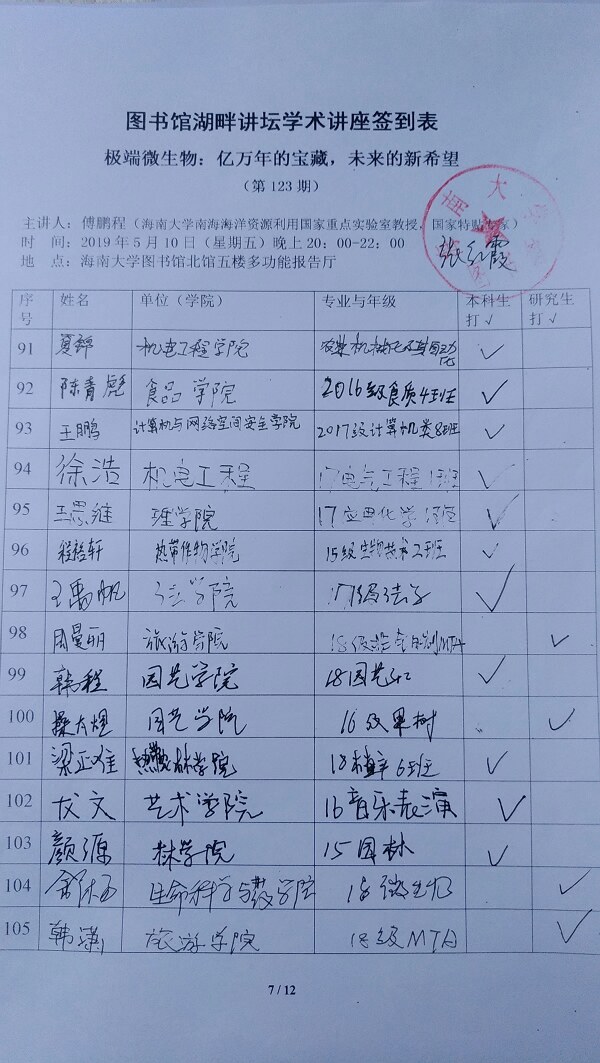 图书馆湖畔讲坛学术讲座签到表
极端微生物：亿万年的宝藏，未来的新希望
（第 123 期）
主讲人：傅鹏程（海南大学南海海洋资源利用国家重点实验室教授，国家特聘专家）
时 间：2019 年 5 月 10 日（星期五）晚上 20：00-22：00
地 点：海南大学图书馆北馆五楼多功能报告厅
张红霞
序号 姓名 单位（学院） 专业与年级 本科生打√ 研究生打√
91 夏锦 机电工程学院 农业机械化及其自动化 √
92 陈青彪 食品学院 2016级食质4班 √
93 王鹏 计算机与网络空间安全学院 2017级计算机类8班 √
94 徐浩 机电工程 17电气工程1班 √
95 理学院 17应用化学 √
96 程裕轩 热带作物学院 15级生物技术2班 √
97 王禹帆 法学院 17级法学 √
98 周曼丽 旅游学院 18级 MTA √
99 韩程 园艺学院 18园艺 √
100 园艺学院 16级果树 √
101 梁正维 林学院 18植 6班 √
102 文 艺术学院 16音乐表演 √
103 颜源 林学院 15园林 √
104 生命科学与药学院 18微生物 √
105 韩潇 旅游学院 18级MTA √
7 / 12